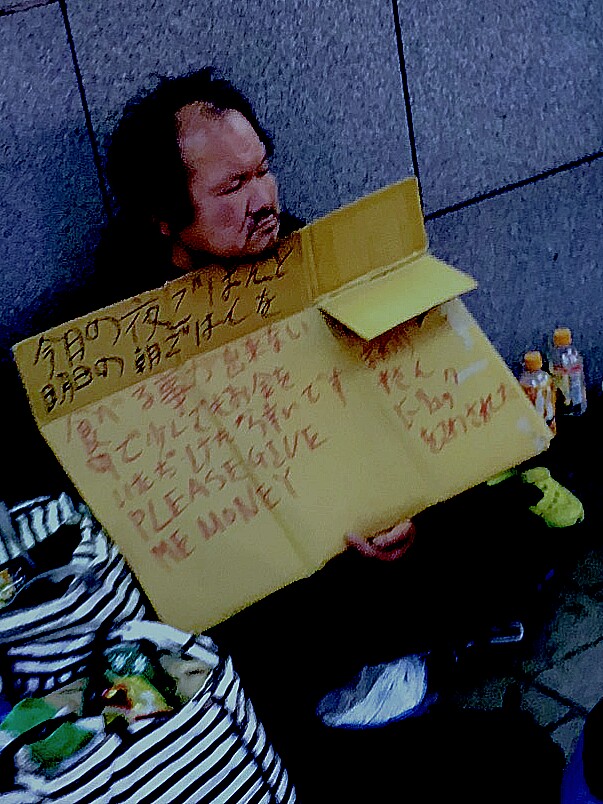 今日の夜ごはんと
明日の朝ごはんを
食べる事の出来ない
で少しでもお金を
いただけたら幸いです
PLEASE GIVE
ME MONEY